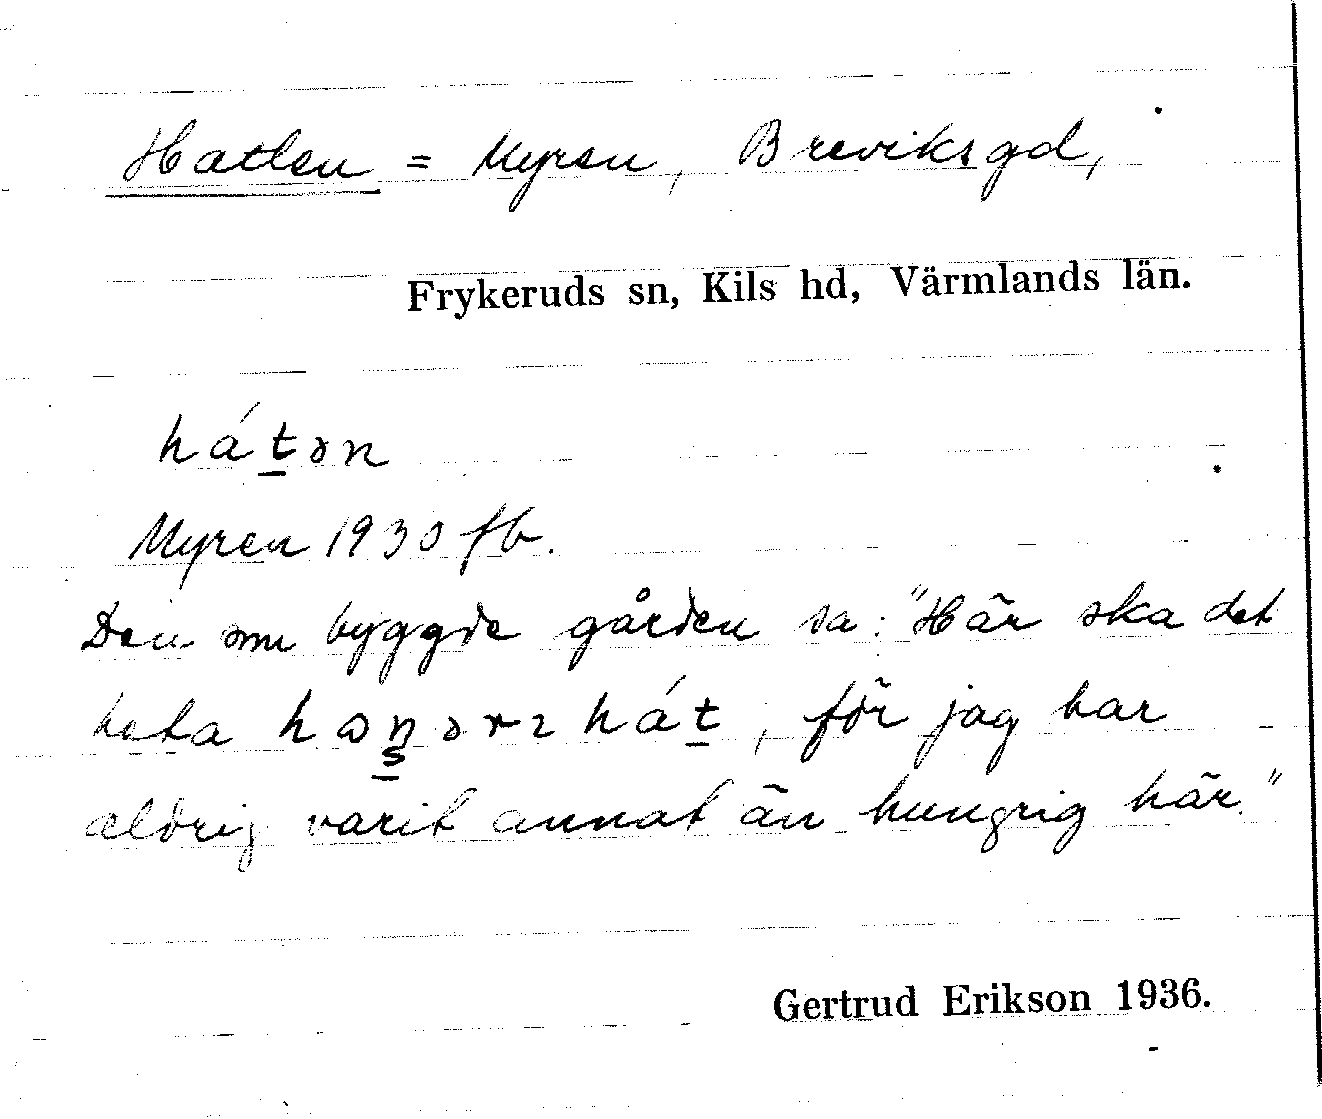 Hatlen = Myren, Breviksgd,
Frykeruds sn, Kils hd, Värmlands län.
hát̲ən
Myren 1930 fb.
Den som byggde gården sa: "Här ska det
heta hát̲, för jag har
aldrig varit annat än hungrig här."
Gertrud Erikson 1936.